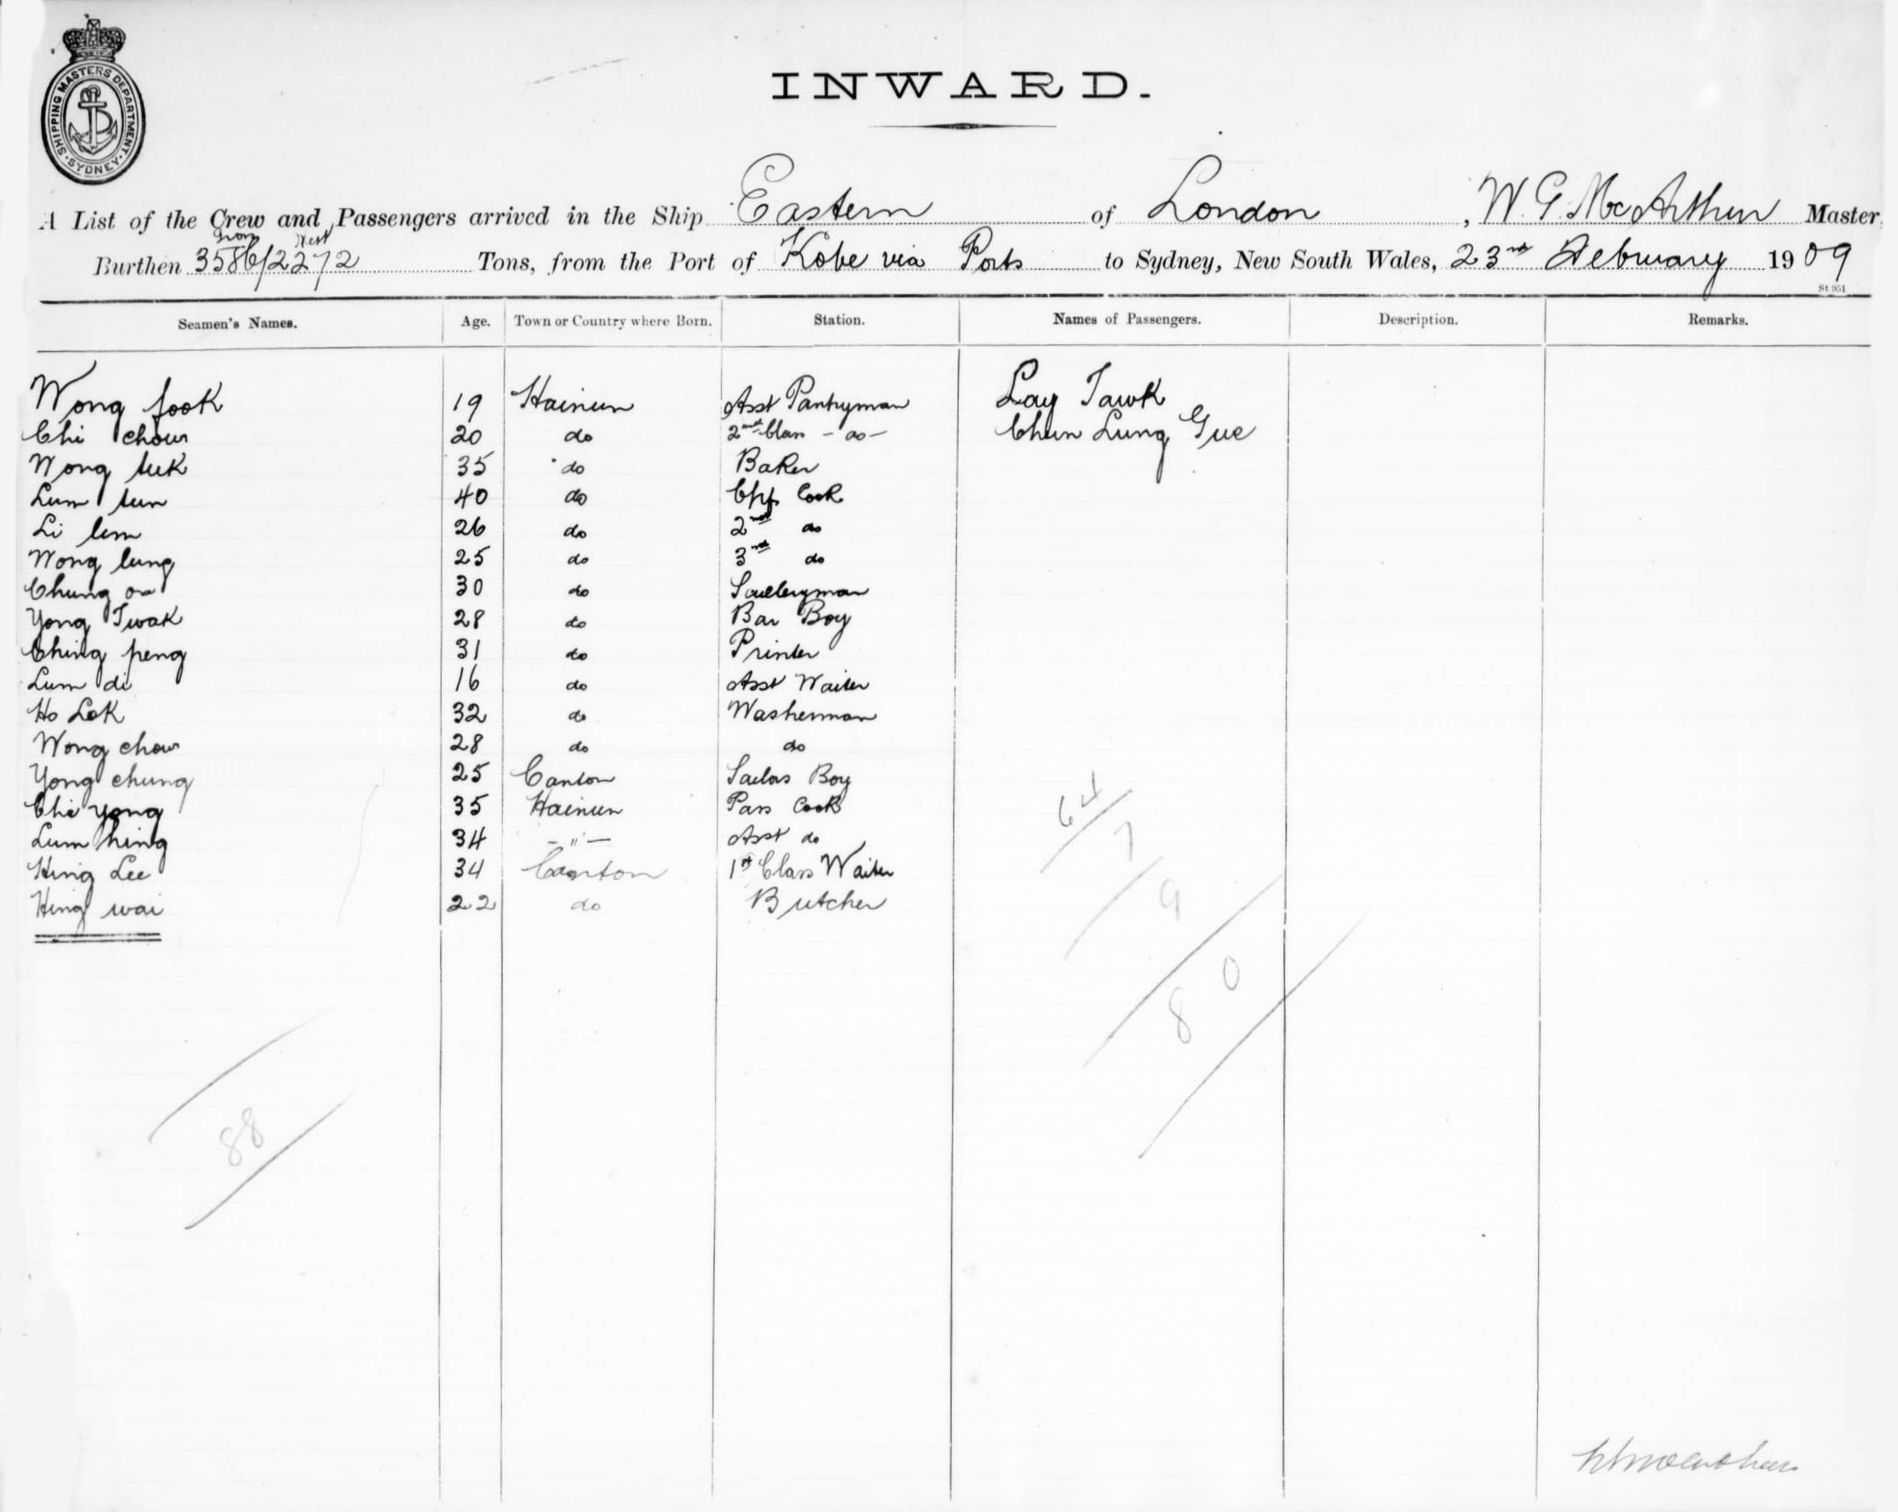 SHIPPING MASTERS DEPARTMENT · SYDNEY ·
INWARD.
A List of the Crew and Passengers arrived in the Ship Eastern of London, W. G. MacArthur Master
Gross Nett
Burthen 3586/2272 Tons, from the Port of Kobe via Ports to Sydney, New South Wales, 23rd February 1909
St 951
Seamen's Names. Age. Town or Country where Born. Station. Names of Passengers. Description. Remarks.
Wong fook 19 Hainun Asst Pantryman Lay Tawk
Chi chow 20 do 2nd Class - do - Chun Lung Gue
Wong tuk 35 do Baker
Lum tun 40 do Chf Cook
Li lim 26 do 2nd do
Wong lung 25 do 3rd do
Chung 30 do Sculleryman
Yong Twak 28 do Bar Boy
Ching peng 31 do Printer
Lum di 16 do Asst Waiter
Ho Lok 32 do Washerman
Wong chow 28 do do
Yong chung 25 Canton Sailors Boy
Chi yong 35 Hainun Pass Cook
Lum hing 34 - " - Asst do
Hing Lee 34 Canton 1st Class Waiter
Hing wai 22 do Butcher
64
7
9
80
88